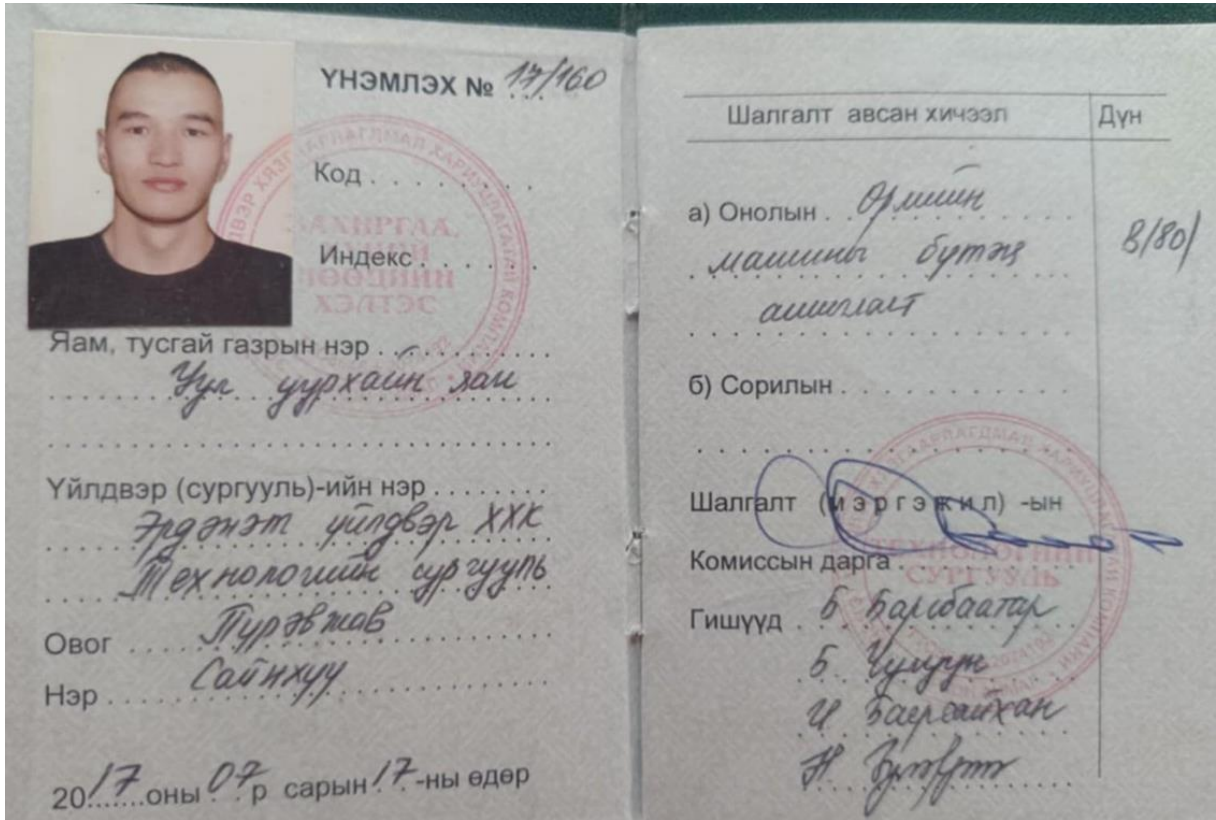 ҮНЭМЛЭХ № 17/160
Код . . . . . . . .
Индекс . . . . . .
ЗАХИРГАА,
ХЭЛТЭС
Яам, тусгай газрын нэр . . . . . . . . . . .
Уул уурхайн яам
Үйлдвэр (сургууль)-ийн нэр . . . . . . . .
Эрдэнэт үйлдвэр ХХК
Технологийн сургууль
Овог Пүрэвжав
Нэр Сайнхүү
2017 оны 07 р сарын 17-ны өдөр
Шалгалт авсан хичээл Дүн
а) Онолын Өрмийн
машины бүтэц
ашиглалт
В/80/
б) Сорилын . . . . . . . . . . . . .
Шалгалт (мэргэжил) -ын
Комиссын дарга
ТЕХНОЛОГИЙН
СУРГУУЛЬ
Гишүүд Б Барсбаатар
Б Чулуун
И Баярсайхан
Н